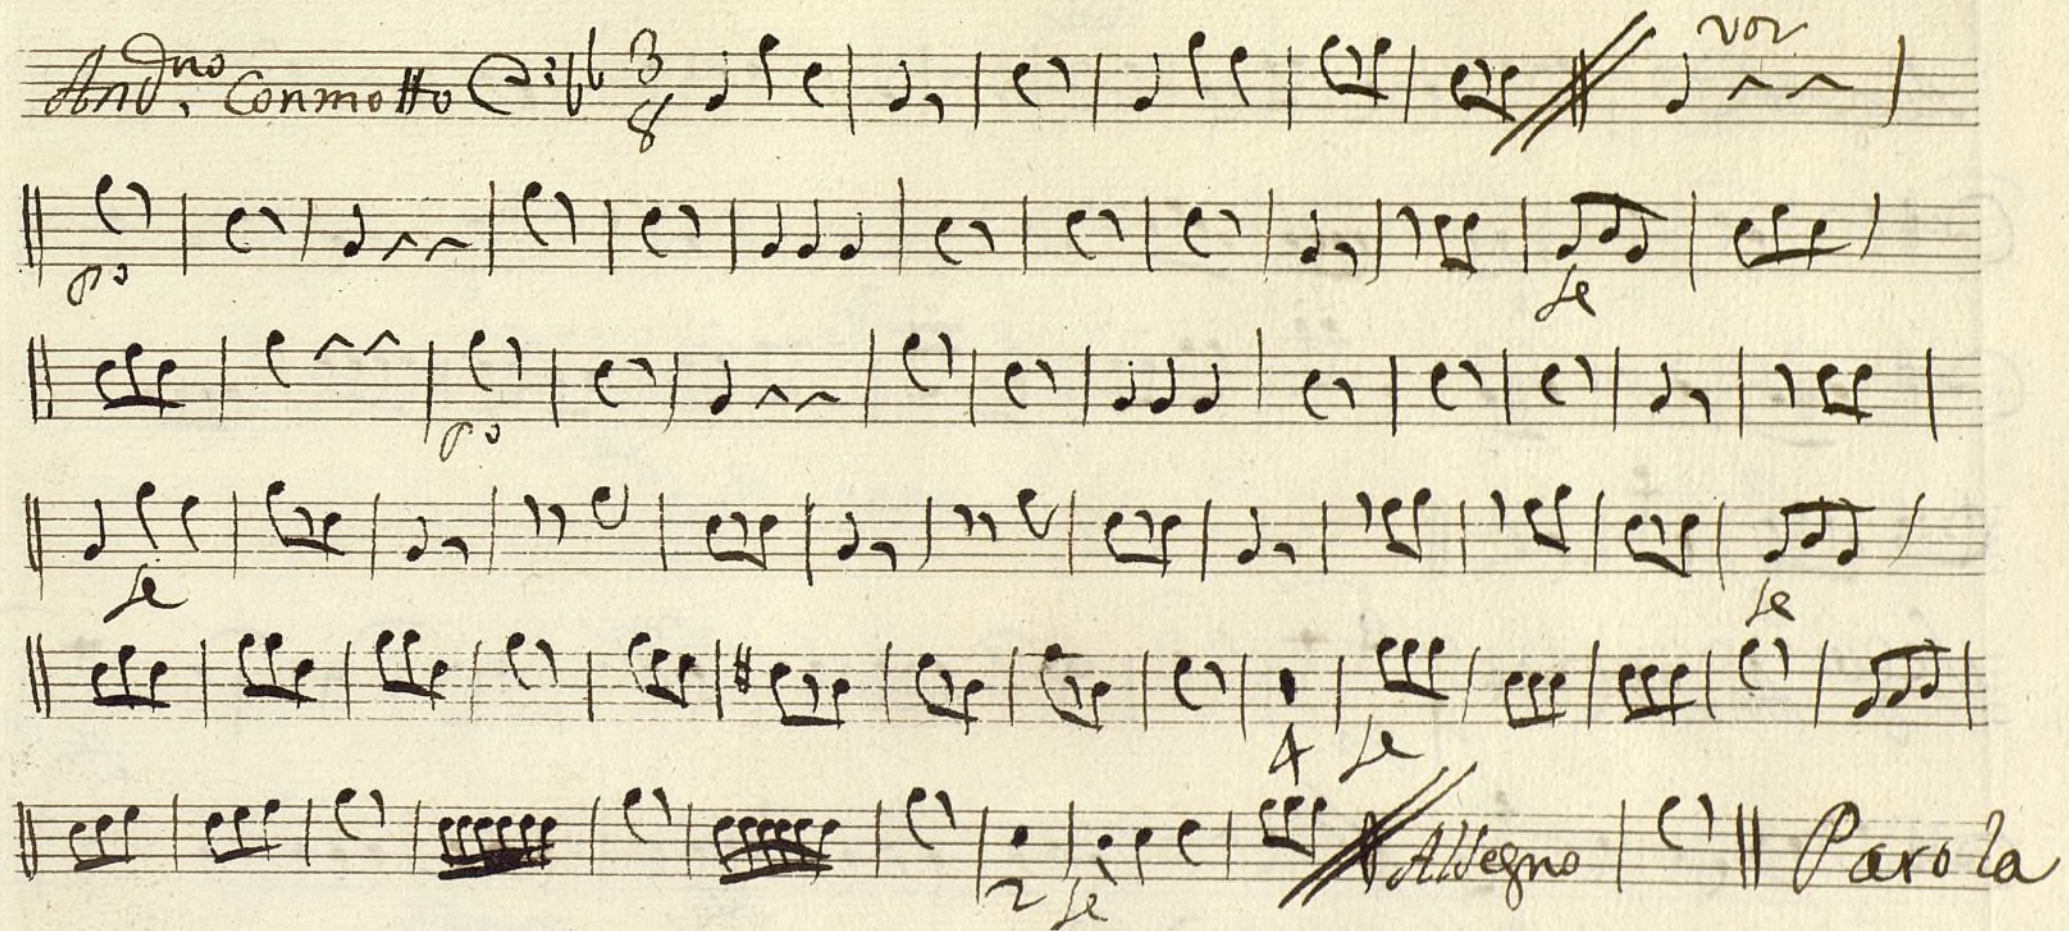 And.no Conmotto 3 8 voz
po fe
po
fe fe
4 fe
2 fe Al Segno Parola